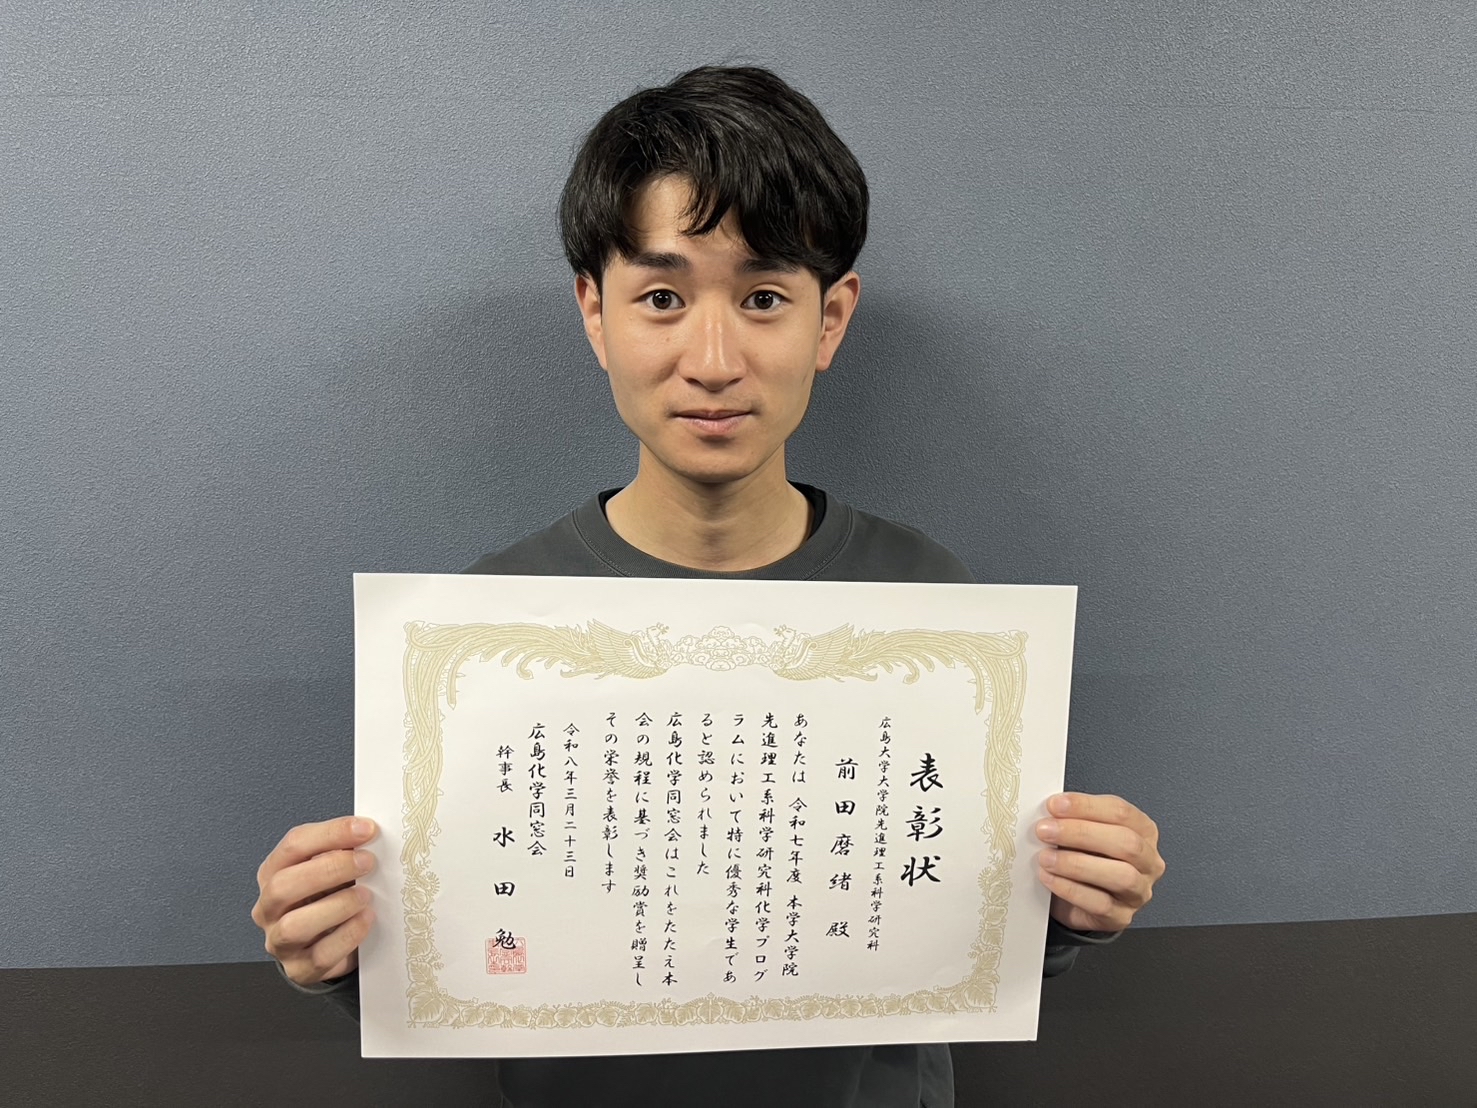 表彰状
広島大学大学院先進理工系科学研究科
前田磨緒 殿
あなたは 令和七年度 本学大学院
先進理工系科学研究科化学プログ
ラムにおいて特に優秀な学生であ
ると認められました
広島化学同窓会はこれをたたえ本
会の規程に基づき奨励賞を贈呈し
その栄誉を表彰します
令和八年三月二十三日
広島化学同窓会
幹事長 水田 勉